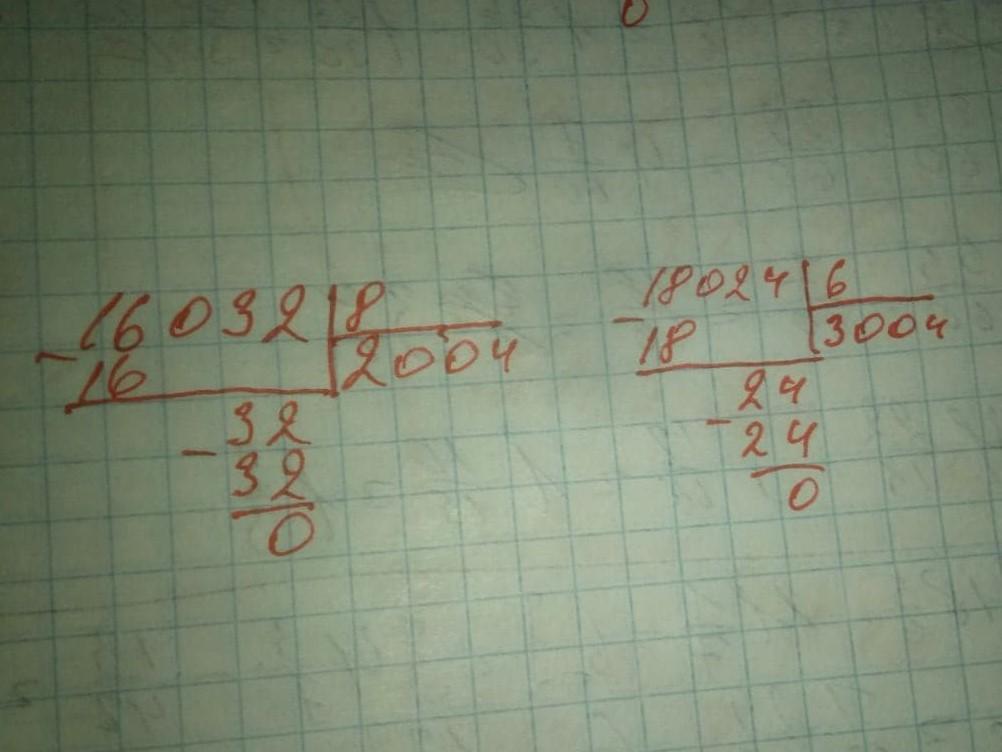 0
16032 8
- 16 2004
32
- 32
0
18024 6
- 18 3004
24
- 24
0